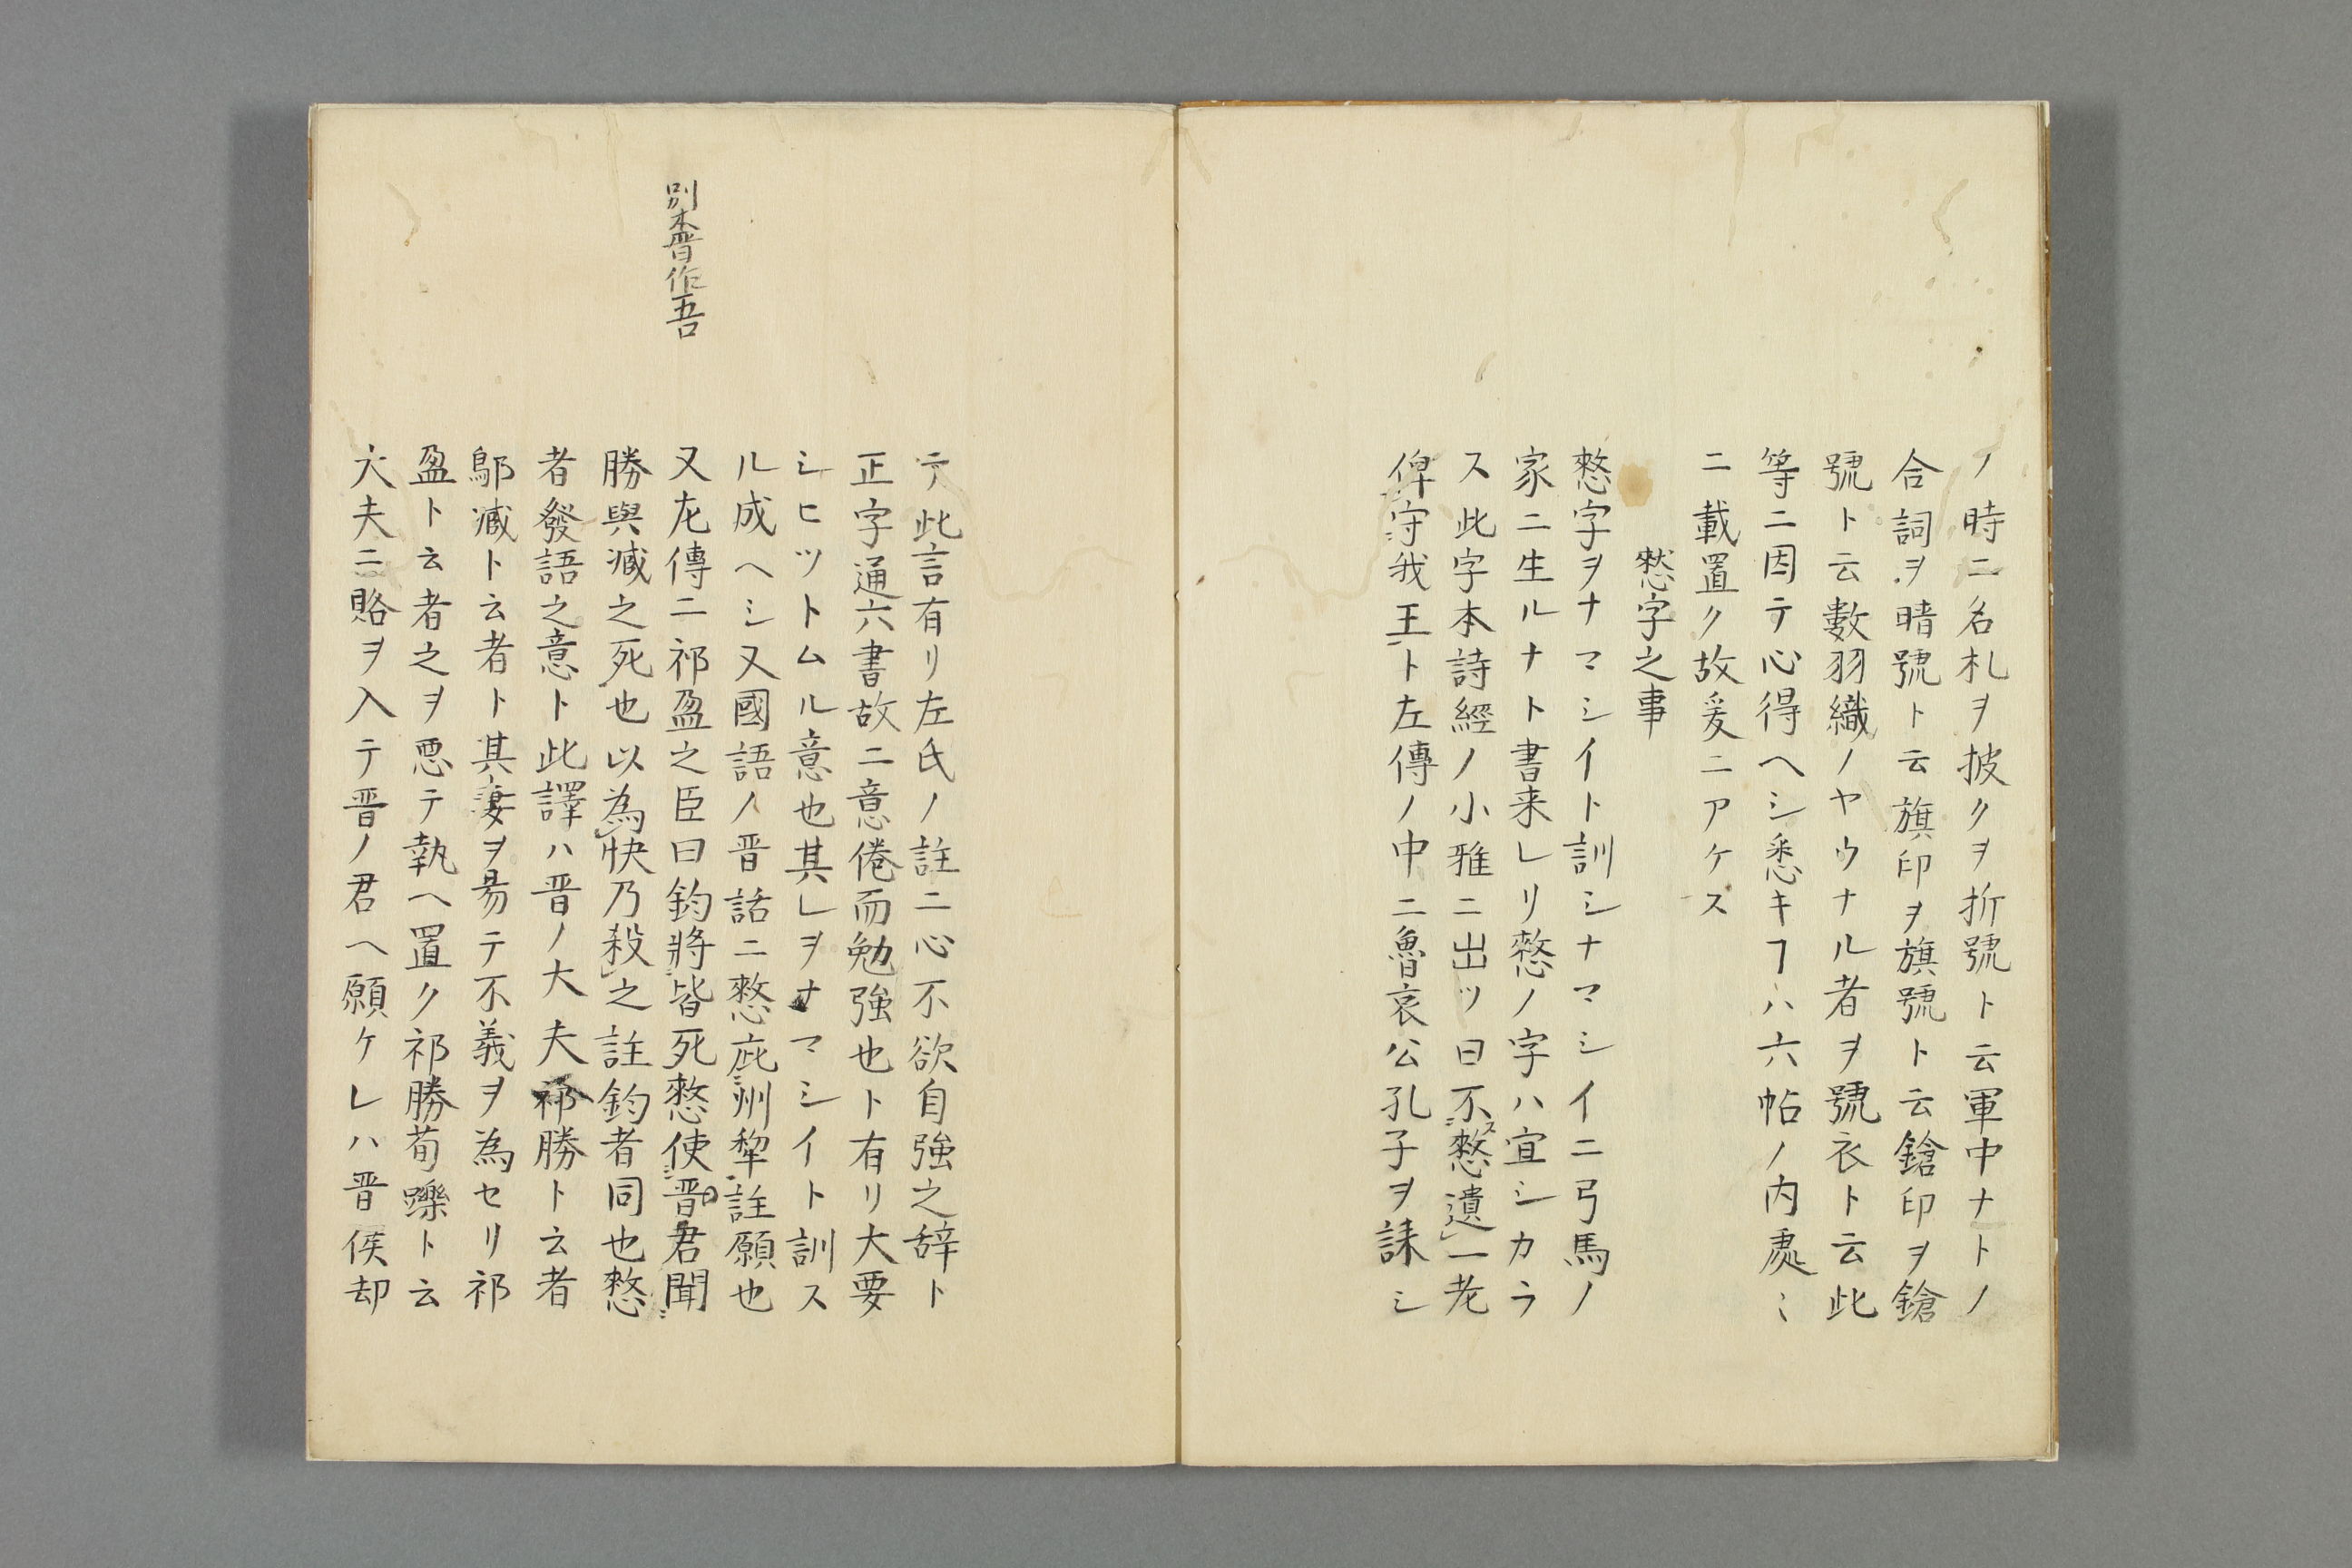 ノ時ニ名札ヲ披クヲ折號ト云軍中ナトノ
合詞ヲ暗號ト云旗印ヲ旗號ト云鎗印ヲ鎗
號ト云數羽織ノヤウナル者ヲ號衣ト云此
等ニ因テ心得ヘシ悉キヿハ六帖ノ内處〻
ニ載置ク故爰ニアケス
憖字之事
憖字ヲナマシイト訓シナマシイニ弓馬ノ
家ニ生ルナト書来レリ憖ノ字ハ宜シカラ
ス此字本詩經ノ小雅ニ出ツ曰不ス憖遺一老
俾守我王ト左傳ノ中ニ魯哀公孔子ヲ誄シ
テ此言有リ左氏ノ註ニ心不欲自強之辞ト
正字通六書故ニ意倦而勉強也ト有リ大要
シヒツトムル意也其レヲナマシイト訓ス
ル成ヘシ又國語ノ晋話ニ憖庇州犂註願也
別本晋作吾
又左傳ニ祁盈之臣曰鈞將皆死憖使晋君聞
勝與臧之死也以為快乃殺之註鈞者同也憖
者發語之意ト此譯ハ晋ノ大夫祁勝ト云者
鄔臧ト云者ト其妻ヲ易テ不義ヲ為セリ祁
盈ト云者之ヲ悪テ執ヘ置ク祁勝荀躒ト云
大夫ニ賂ヲ入テ晋ノ君ヘ願ケレハ晋侯却